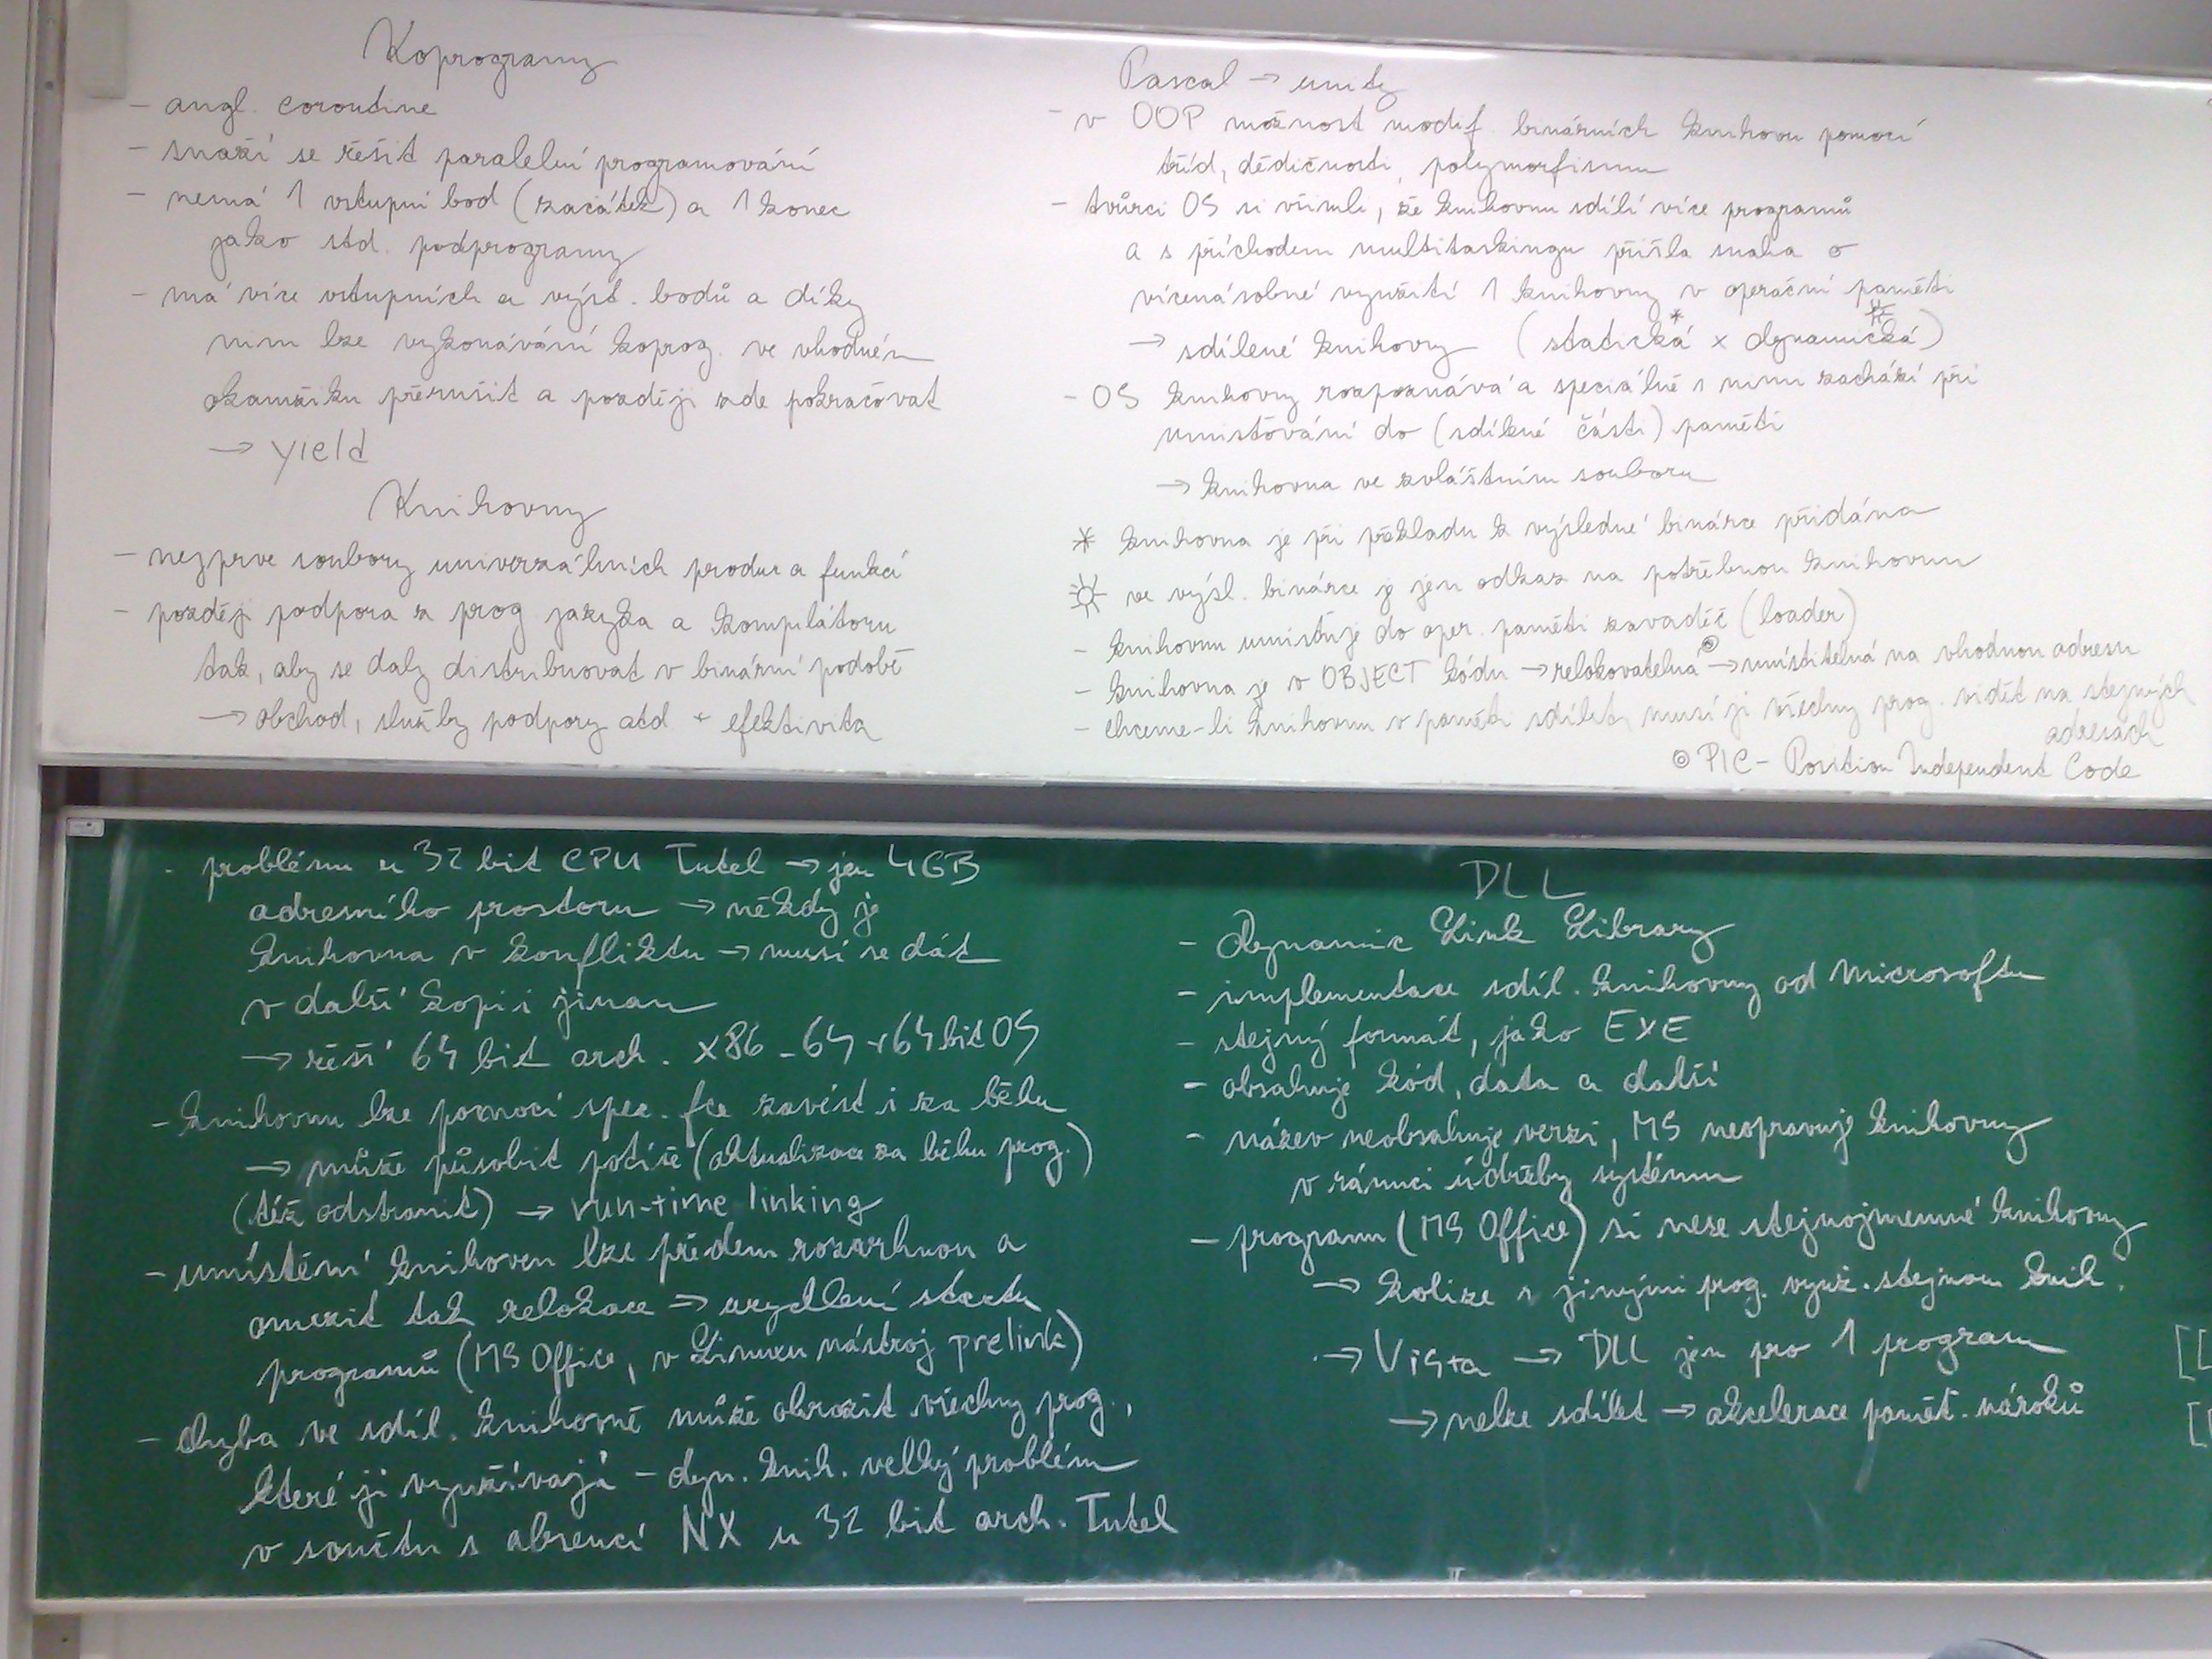 Koprogramy
- angl. coroutine
- snaží se řešit paralelní programování
- nemá 1 vstupní bod (začátek) a 1 konec
jako std. podprogramy
- má více vstupních a výst. bodů a díky
nim lze vykonávání koprog. ve vhodném
okamžiku přerušit a později zde pokračovat
→ yield
Knihovny
- nejprve soubory univerzálních procedur a funkcí
- později podpora z prog jazyka a kompilátoru
tak, aby se daly distribuovat v binární podobě
→ obchod, služby podpory atd + efektivita
Pascal → unity
- v OOP možnost modif. binárních knihoven pomocí
tříd, dědičnosti, polymorfismu
- tvůrci OS si všimli, že knihovnu sdílí více programů
a s příchodem multitaskingu přišla snaha o
vícenásobné využití 1 knihovny v operační paměti
→ sdílené knihovny (statická* x dynamická☼)
- OS knihovny rozpoznává a speciálně s nimi zachází při
umisťování do (sdílené části) paměti
→ knihovna ve zvláštním souboru
* knihovna je při překladu k výsledné binárce přidána
☼ ve výsl. binárce je jen odkaz na potřebnou knihovnu
- knihovnu umisťuje do oper. paměti zavaděč (loader)
- knihovna je v OBJECT kódu → relokovatelná© → umístitelná na vhodnou adresu
- chceme-li knihovnu v paměti sdílet, musí ji všechny prog. vidět na stejných
adresách
© PIC - Position Independent Code
- problém u 32 bit CPU Intel → jen 4GB
adresního prostoru → někdy je
knihovna v konfliktu → musí se dát
v další kopii jinam
→ řeší 64 bit arch. x86_64 + 64 bit OS
- knihovnu lze pomocí spec. fce zavést i za běhu
→ může působit potíže (aktualizace za běhu prog.)
(též odstranit) → run-time linking
- umístění knihoven lze předem rozvrhnou a
omezit tak relokace → urychlení startu
programů (MS Office, v Linuxu nástroj prelink)
- chyba ve sdíl. knihovně může ohrozit všechny prog.,
které ji využívají - dyn. knih. velký problém
v součtu s absencí NX u 32 bit arch. Intel
DLL
- Dynamic Link Library
- implementace sdíl. knihovny od Microsoftu
- stejný formát, jako EXE
- obsahuje kód, data a další
- název neobsahuje verzi, MS neopravuje knihovny
v rámci údržby systému
- program (MS Office) si nese stejnojmenné knihovny
→ kolize s jinými prog. využ. stejnou knih.
→ Vista → DLL jen pro 1 program
→ nelze sdílet → akcelerace pamět. nároků